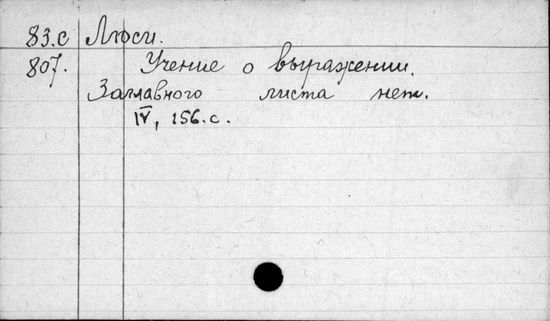 83.с Люси.
807. Учение о выражении.
Заглавного листа нет.
IV, 156.с.